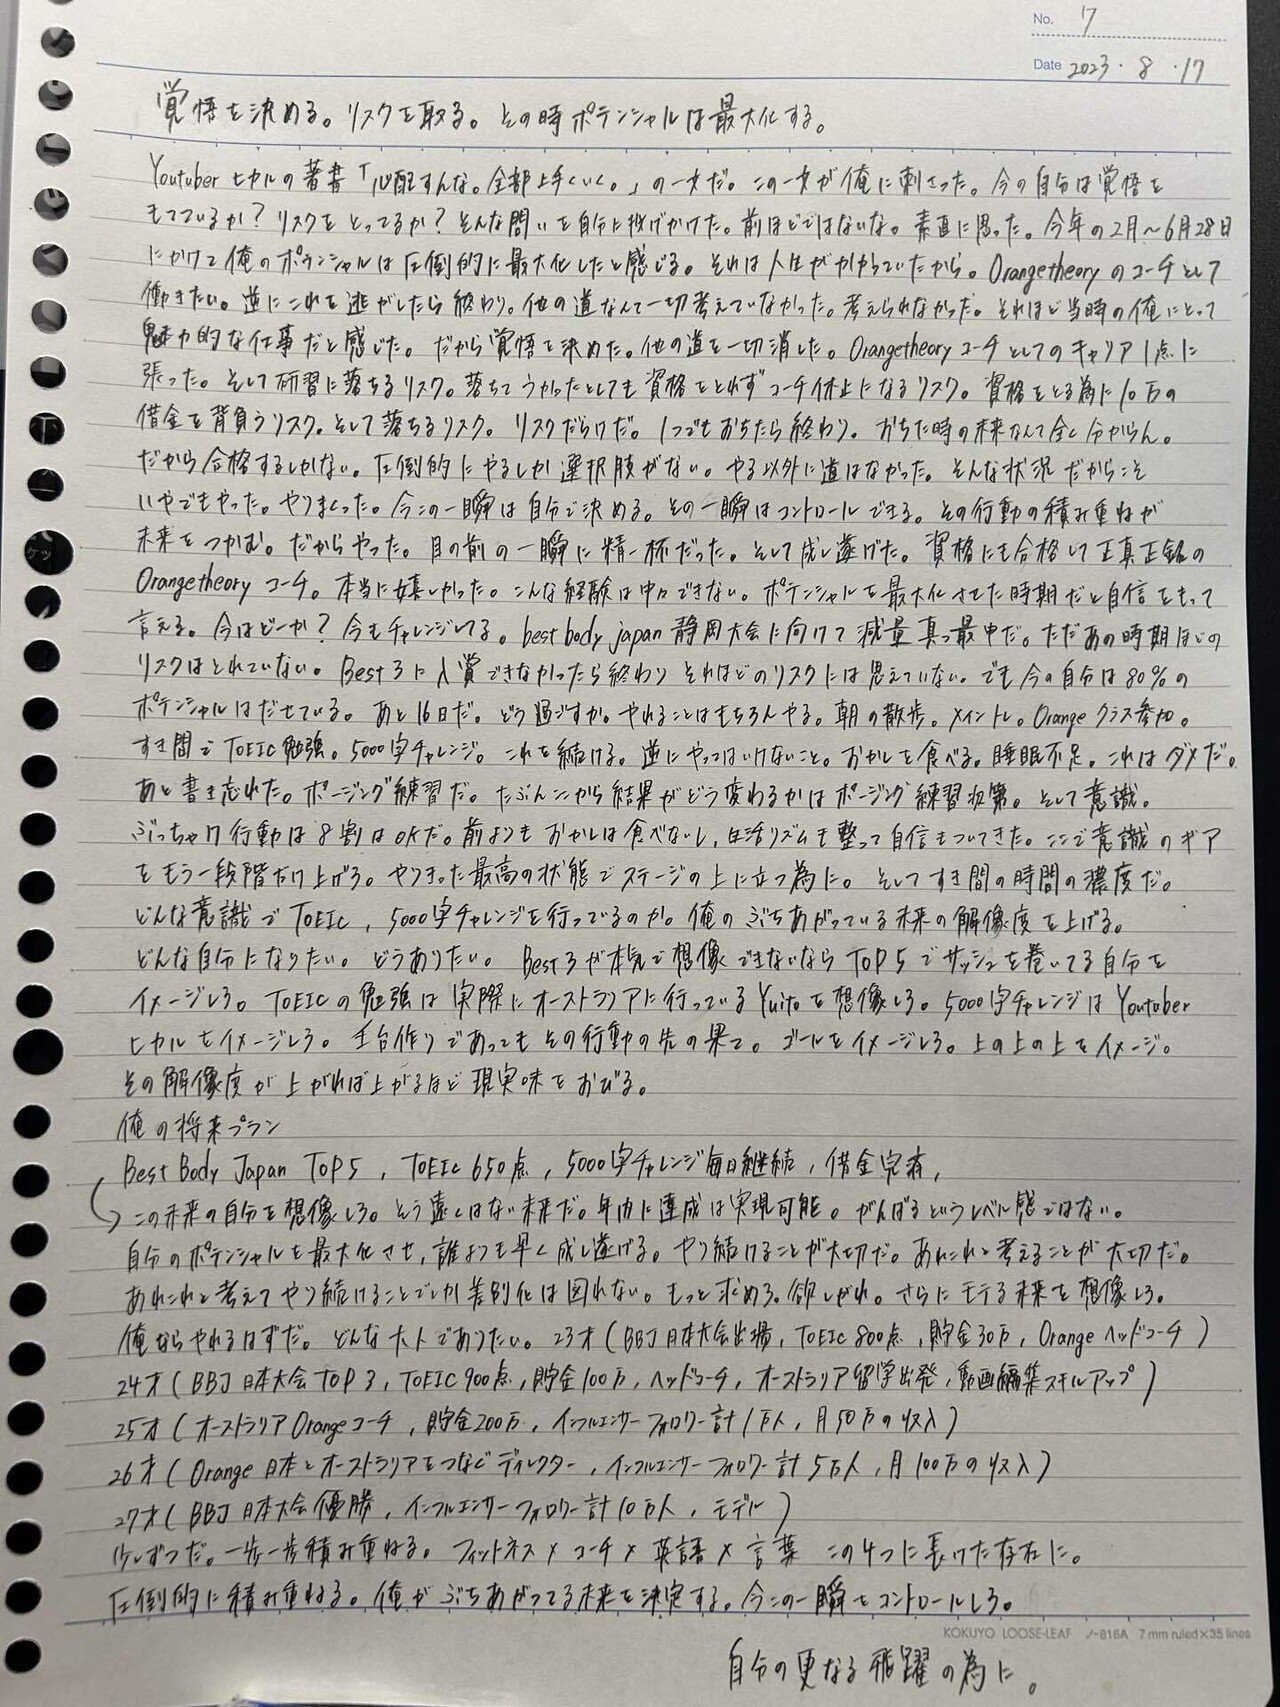 No. 7
Date 2023・8・17
覚悟を決める。リスクを取る。その時ポテンシャルは最大化する。
Youtuber ヒカルの著書「心配すんな。全部上手くいく。」の一文だ。この一文が俺に刺さった。今の自分は覚悟を
もてているか?リスクをとってるか?そんな問いを自分に投げかけた。前ほどではないな。素直に思った。今年の2月〜6月28日
にかけて俺のポテンシャルは圧倒的に最大化したと感じる。それは人生がかかっていたから。Orangetheoryのコーチとして
働きたい。逆にこれを逃がしたら終わり。他の道なんて一切考えていなかった。考えられなかった。それほど当時の俺にとって
魅力的な仕事だと感じた。だから覚悟を決めた。他の道を一切消した。Orangetheoryコーチとしてのキャリア1点に
張った。そして研修に落ちるリスク。落ちてうかったとしても資格をとれずコーチ休止になるリスク。資格をとる為に10万の
借金を背負うリスク。そして落ちるリスク。リスクだらけだ。1つでもおちたら終わり。おちた時の未来なんて全く分からん。
だから合格するしかない。圧倒的にやるしか選択肢がない。やる以外に道はなかった。そんな状況だからこそ
いやでもやった。やりまくった。今この一瞬は自分で決める。その一瞬はコントロールできる。その行動の積み重ねが
未来をつかむ。だからやった。目の前の一瞬に精一杯だった。そして成し遂げた。資格にも合格して正真正銘の
Orangetheoryコーチ。本当に嬉しかった。こんな経験は中々できない。ポテンシャルを最大化させた時期だと自信をもって
言える。今はどーか?今もチャレンジしてる。best body japan 静岡大会に向けて減量真っ最中だ。ただあの時期ほどの
リスクはとれていない。Best3に入賞できなかったら終わり それほどのリスクには思えていない。でも今の自分は80%の
ポテンシャルはだせている。あと16日だ。どう過ごすか。やれることはもちろんやる。朝の散歩。メイントレ。Orangeクラス参加。
すき間でTOEIC勉強。5000字チャレンジ。これを続ける。逆にやってはいけないこと。おかしを食べる。睡眠不足。これはダメだ。
あと書き忘れた。ポージング練習だ。たぶんここから結果がどう変わるかはポージング練習次第。そして意識。
ぶっちゃけ行動は8割はOKだ。前よりもおかしは食べないし、生活リズムも整って自信もついてきた。ここで意識のギア
をもう一段階だけ上げろ。やりきった最高の状態でステージの上に立つ為に。そしてすき間の時間の濃度だ。
どんな意識でTOEIC、5000字チャレンジを行っているのか。俺のぶちあがっている未来の解像度を上げる。
どんな自分になりたい。どうありたい。Best3が本気で想像できないならTOP5でサッシュを巻いてる自分を
イメージしろ。TOEICの勉強は実際にオーストラリアに行っているYuitoを想像しろ。5000字チャレンジはYoutuber
ヒカルをイメージしろ。土台作りであってもその行動の先の果て。ゴールをイメージしろ。上の上の上をイメージ。
その解像度が上がれば上がるほど現実味をおびる。
俺の将来プラン
Best Body Japan TOP5、TOEIC 650点、5000字チャレンジ毎日継続、借金完済、
この未来の自分を想像しろ。そう遠くはない未来だ。年内に達成は実現可能。がんばるというレベル感ではない。
自分のポテンシャルを最大化させ、誰よりも早く成し遂げる。やり続けることが大切だ。あれこれと考えることが大切だ。
あれこれと考えてやり続けることでしか差別化は図れない。もっと求めろ。欲しがれ。さらにモテる未来を想像しろ。
俺ならやれるはずだ。どんな大人でありたい。23才(BBJ日本大会出場、TOEIC 800点、貯金30万、Orangeヘッドコーチ)
24才(BBJ日本大会TOP3、TOEIC900点、貯金100万、ヘッドコーチ、オーストラリア留学出発、動画編集スキルアップ)
25才(オーストラリアOrangeコーチ、貯金200万、インフルエンサーフォロワー計1万人、月50万の収入)
26才(Orange日本とオーストラリアをつなぐディレクター、インフルエンサーフォロワー計5万人、月100万の収入)
27才(BBJ日本大会優勝、インフルエンサーフォロワー計10万人、モデル)
少しずつだ。一歩一歩積み重ねる。フィットネス×コーチ×英語×言葉 この4つに長けた存在に。
圧倒的に積み重ねる。俺がぶちあがってる未来を決定する。今この一瞬をコントロールしろ。
KOKUYO LOOSE-LEAF ノ-816A 7mm ruled×35 lines
自分の更なる飛躍の為に。